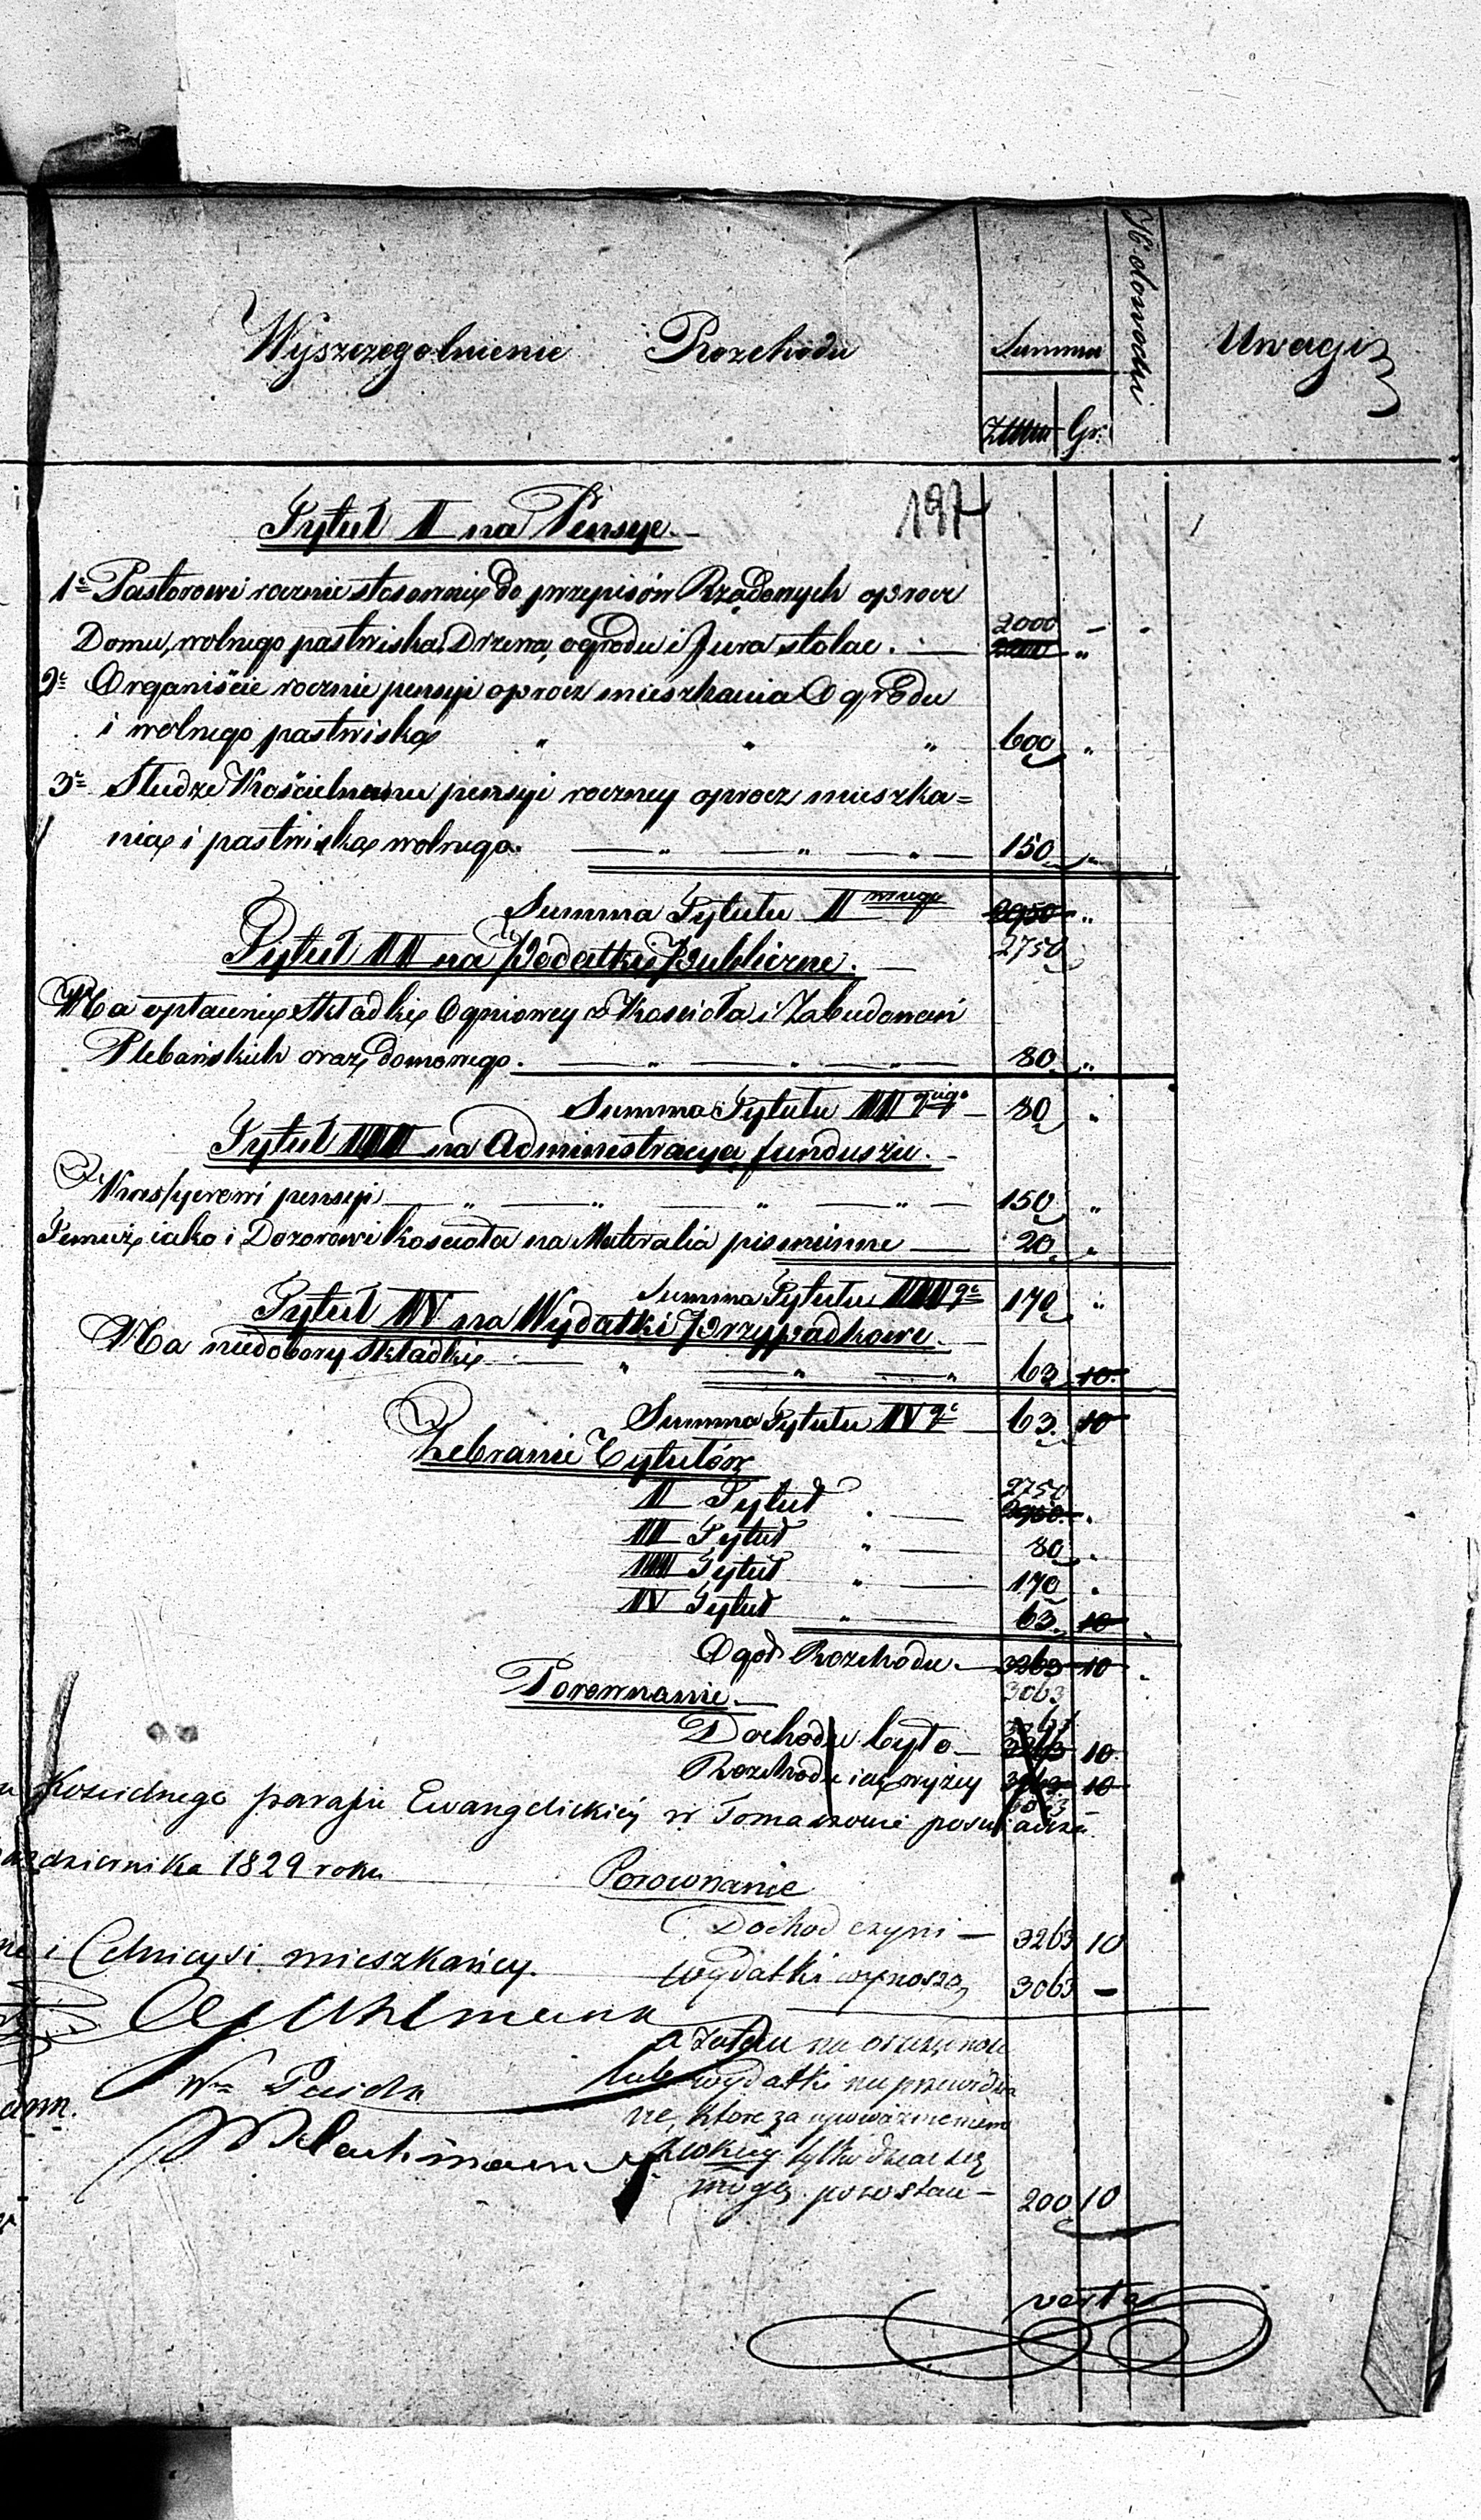 Wyszczegolnienie Rozchodu
Summa
N: dowodu
Uwagi
Gr:
197
Tytuł II na Pensye.
1e Pastorowi rocznie stosownie do przepisów Rządowych oprocz
Domu, wolnego pastwiska, Drzewa, ogrodu i Jura stolae. — 2000 —
2e Organiście rocznie pensyi oprocz mieszkania Ogrodu
i wolnego pastwiska " " " 600 "
3e Słudze Kościelnemu pensyi roczney oprocz mieszka=
nia i pastwiska wolnego. — " — " — " — 150 "
Summa Tytułu II 2950 "
2750
Tytuł III na Podatki Publiczne. —
Na opłacenie Składki Ogniowey z Kościoła i Zabudowań
Plebańskich oraz domowego. — " — " — " — 80 "
Summa Tytułu III go — 80 "
Tytuł IIII na Administracya funduszu. —
Kassyerowi pensyi — " — " — " — " — 150 "
Temuż iako i Dozorowi Kościoła na Materalia pismienne — 20 "
Summa Tytułu IIII go 170 "
Tytuł IV na Wydatki Przypadkowe. —
Na niedobory Składki — " — " — " 63 10
Summa Tytułu IV go — 63. 10
Zebranie Tytułów
2750
II Tytuł . — 2950 .
III Tytuł " — 80 .
IIII Tytuł " — 170 .
IV Tytuł " — 63. 10
Ogoł Rozchodu. — 3263 10
3063
Porownanie. —
Dochodu było — 3263 10
Rozchodu iak wyżey 3263 10
3063
Kościelnego parafii Ewangelickiéy w Tomaszowie poswiadcza
dziernika 1829 roku
Porownanie
Dochod czyni — 3263 10
i Celnieysi mieszkańcy.
Wydatki wynoszą 3063 —
a Zatem na
lub wydatki nie przewidzia
ne, ktore za upoważnieniem
tylko dziać się
mogą. pozostaie — 200 10
verte